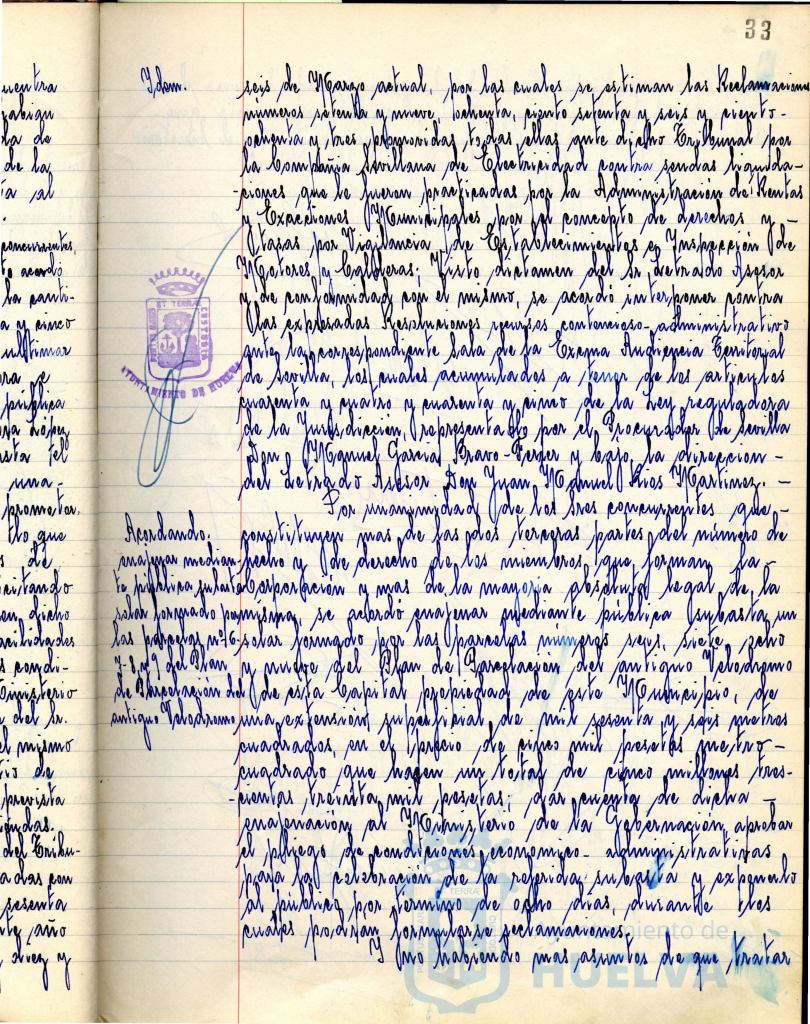 33
Idem.
seis de Marzo actual, por las cuales se estiman las Reclamaciones
números setenta y nueve, ochenta, ciento setenta y seis y ciento-
ochenta y tres promovidas todas ellas ante dicho Tribunal por
la Compañia Sevillana de Electricidad contra sendas liquida-
-ciones que le fueron practicadas por la Administración de Rentas
y Exacciones Municipales por el concepto de derechos y -
tasas por Vigilancia de Establecimientos e Inspección de
Motores y Calderas; Visto dictamen del Sr. Letrado Asesor
y de conformidad con el mismo, se acordó interponer contra
las expresadas Resoluciones recursos contencioso-administrativo
ante la correspondiente Sala de la Excma Audiencia Territorial
de Sevilla, los cuales acumulados a tenor de los articulos
cuarenta y cuatro y cuarenta y cinco de la Ley reguladora
de la Jurisdicción, representado por el Procurador de Sevilla
Don Manuel García Bravo-Ferrer y bajo la dirección -
del Letrado Asesor Don Juan Manuel Rios Martinez. -
Por unanimidad de los tres concurrentes que -
constituyen mas de las dos terceras partes del número de
hecho y de derecho de los miembros que forman la -
Corporación y mas de la mayoria absoluta legal de la
misma, se acordó enajenar mediante pública subasta un
solar formado por las parcelas números seis, siete ocho
y nueve del Plan de Parcelación del antiguo Velodromo
de esta Capital propiedad de este Municipio, de
una extensión superficial de mil sesenta y seis metros
cuadrados, en el precio de cinco mil pesetas metro-
cuadrado que hacen un total de cinco millones tres-
-cientas treinta mil pesetas; dar cuenta de dicha -
enajenación al Ministerio de la Gobernación, aprobar
el pliego de condiciones economico-administrativas
para la celebración de la referida subasta y exponerlo
al público por término de ocho dias, durante los
cuales podran formularse reclamaciones.
Y no habiendo mas asuntos de que tratar
Acordando.
enajenar median-
te pública subasta
solar formado por
las parcelas nº 6-
7-8 y 9 del Plan
de Parcelación del
antiguo Velodromo
AYUNTAMIENTO DE HUELVA
uentra
de la
ia al
concurrentes,
to acordó
la canti-
a y cinco
ultimar
ra e
pública
una -
prometer,
llo que
s de
citando
en dicho
acilidades
s condi-
Ministerio
del Sr.
el mismo
io de
prevista
del Tribu-
adas con
sesenta
te año
diez y
Ayuntamiento de
HUELVA